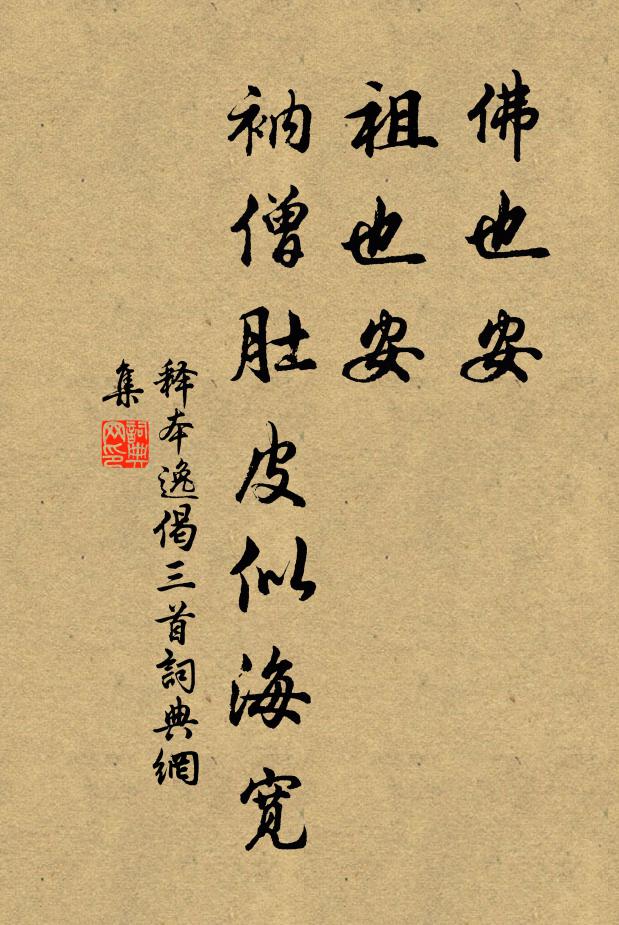 佛也安
祖也安
衲僧肚皮似海寬
释本逸偈三首詞典網
集
詞典
网印